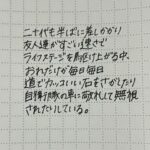 二十代も半ばに差しかかり
友人達がすごい速さで
ライフステージを駆け上がる中、
おれだけが毎日毎日
道でカッコいい石をさがしたり
自衛隊の車に敬礼して無視
されたりしている。